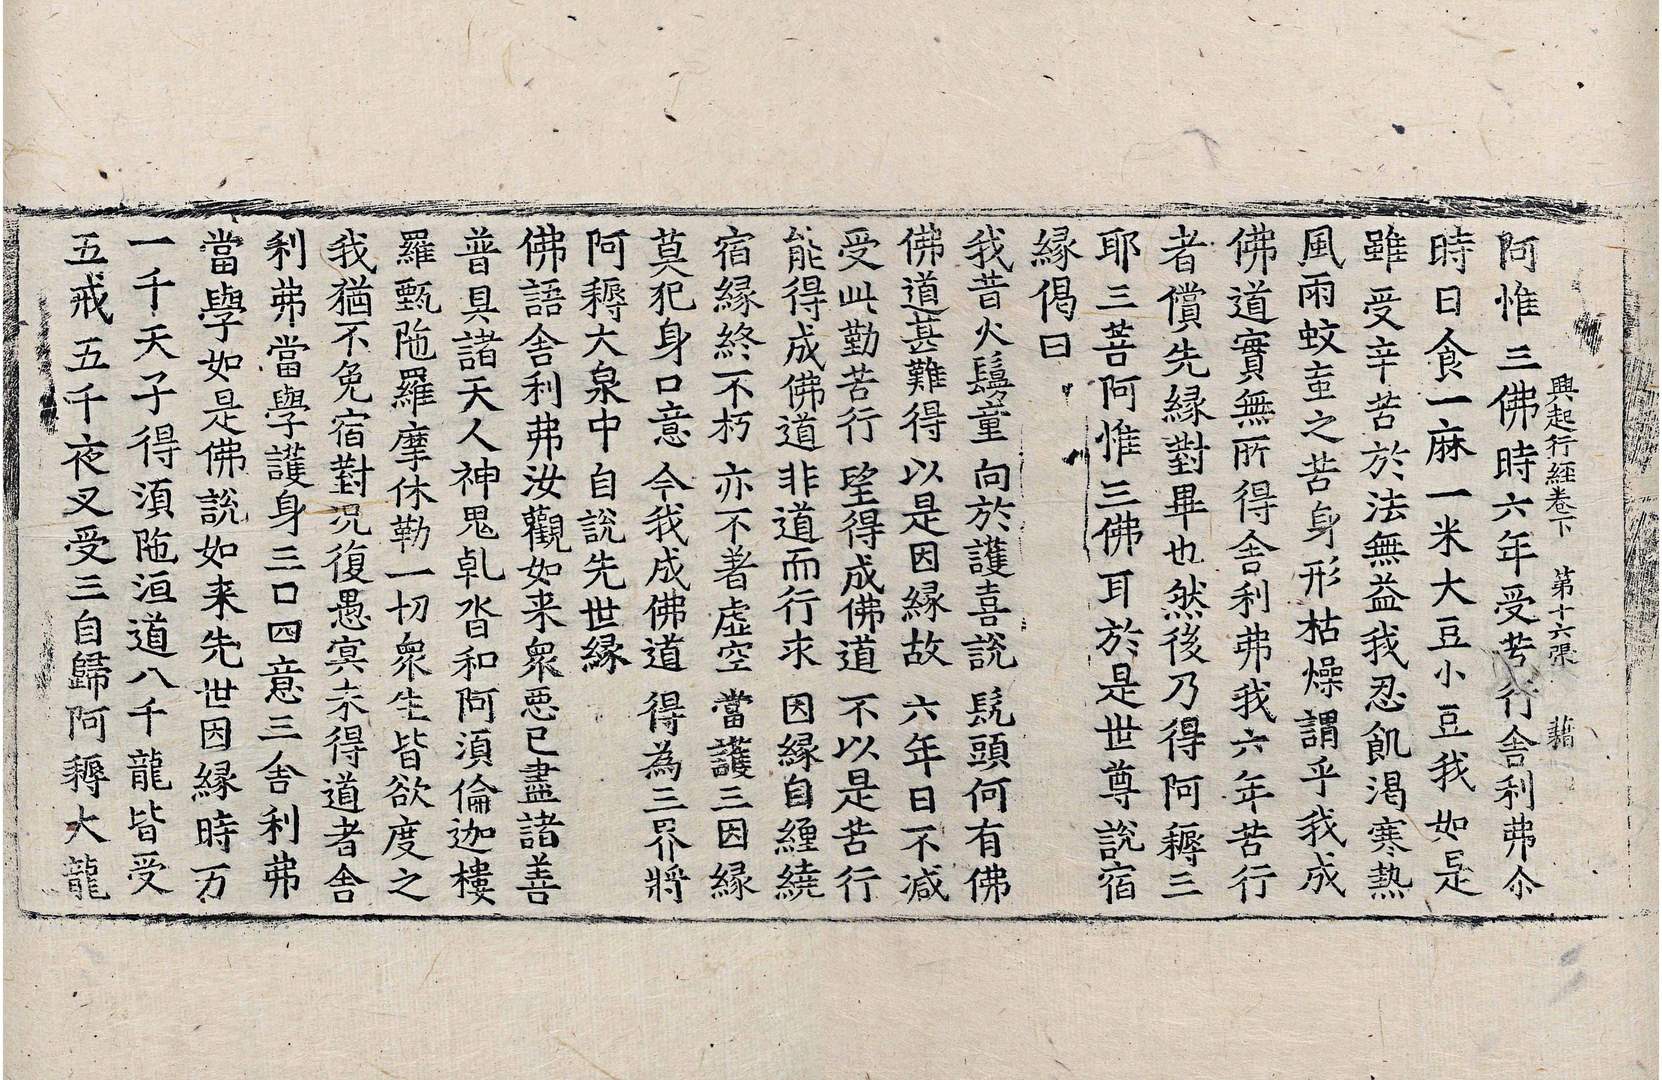 興起行經卷下 第十六張 藉
阿惟三佛時六年受苦行舍利弗尒
時日食一麻一米大豆小豆我如是
雖受辛苦於法無益我忍飢渴寒熱
風雨蚊䖟之苦身形枯燥謂乎我成
佛道實無所得舍利弗我六年苦行
者償先縁對畢也然後乃得阿耨三
耶三菩阿惟三佛耳於是世尊說宿
縁偈曰
我昔火鬘童 向於護喜說 髡頭何有佛
佛道甚難得 以是因縁故 六年日不減
受此勤苦行 望得成佛道 不以是苦行
能得成佛道 非道而行求 因縁自纏繞
宿縁終不朽 亦不著虛空 當護三因縁
莫犯身口意 今我成佛道 得為三界將
阿耨大泉中 自說先世縁
佛語舍利弗汝觀如来衆悪已盡諸善
普具諸天人神鬼乹沓和阿湏倫迦樓
羅甄陁羅摩休勒一切衆生皆欲度之
我猶不免宿對况復愚㝠未得道者舍
利弗當學護身三口四意三舍利弗
當學如是佛說如来先世因縁時万
一千天子得湏陁洹道八千龍皆受
五戒五千夜叉受三自歸阿耨大龍